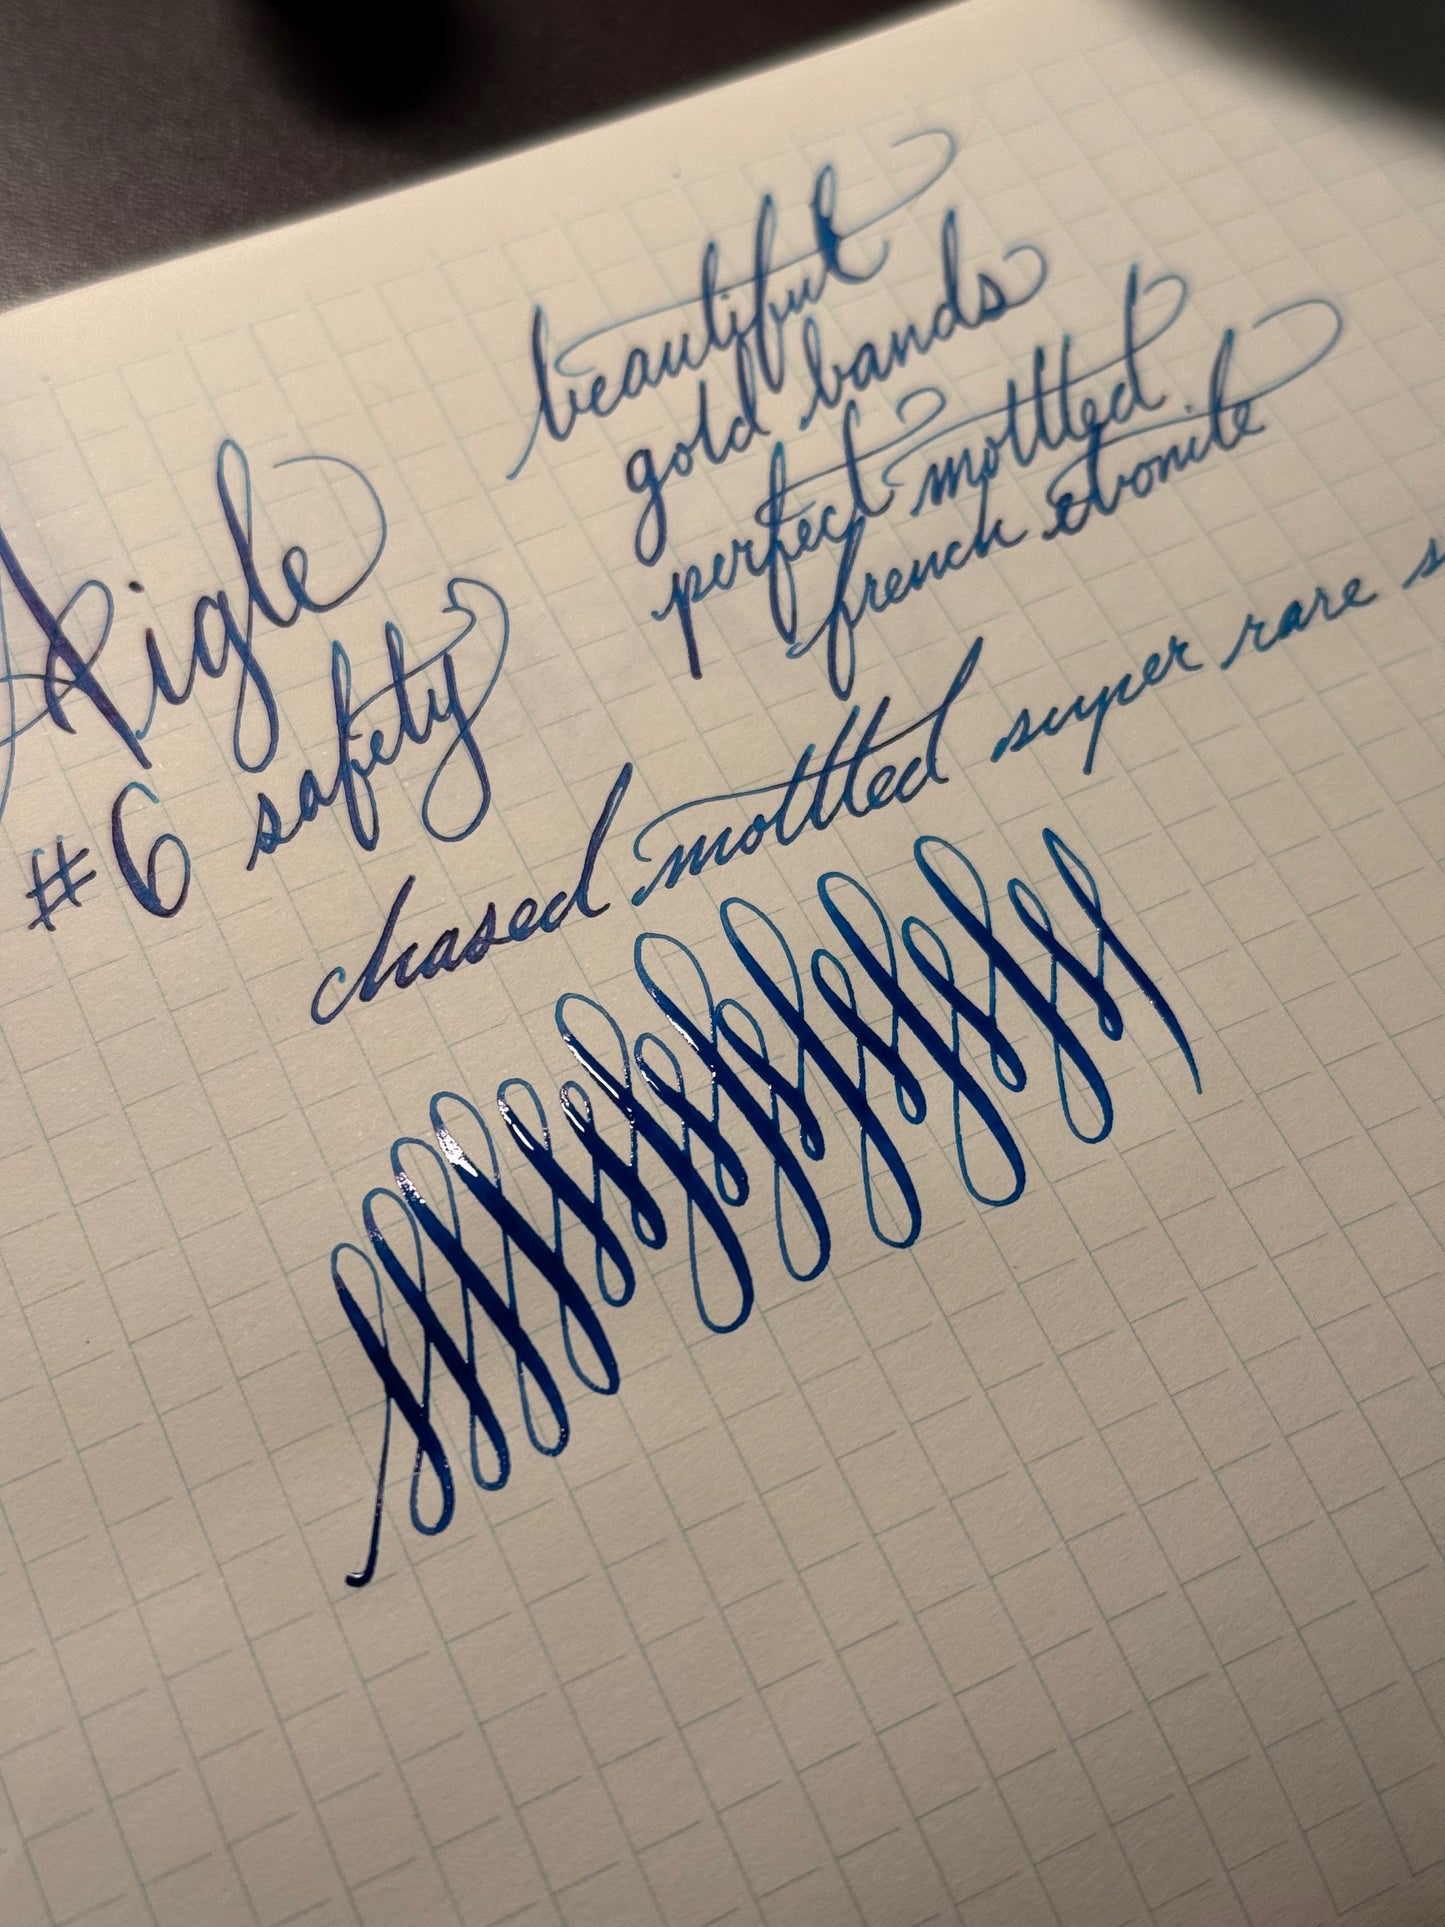 beautiful
gold bands
perfect mottled
french ebonite
Aigle
#6 safety
chased mottled super rare